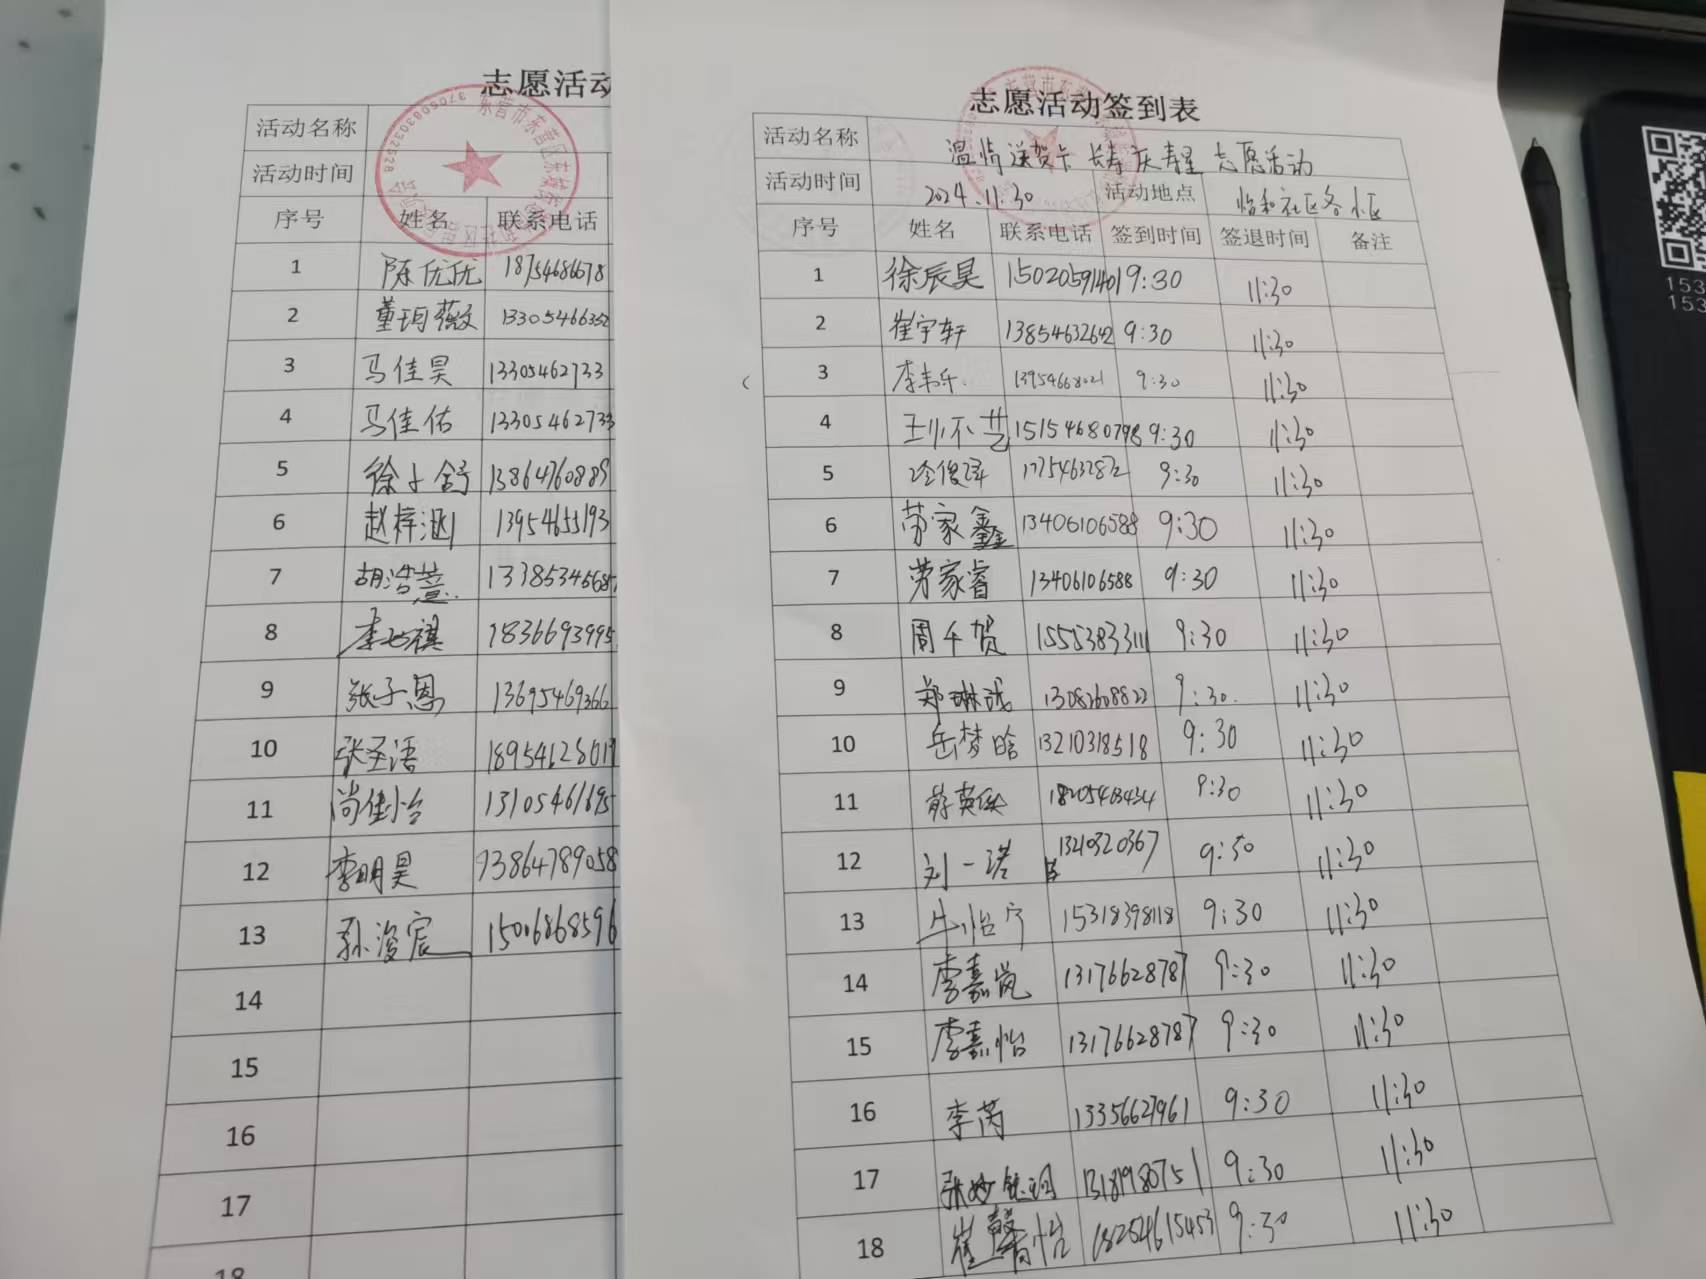 志愿活动
活动名称
活动时间
序号 姓名 联系电话
1 陈优优 18754686678
2 董玥薇 13305466352
3 马佳昊 13305462733
4 马佳佑 13305462733
5 徐 舒 13864760889
6 赵梓涵 13954655193
7 胡浩萱 13385345685
8 李 祺 1836693995
9 张子恩 13695469366
10 张圣语 1895462801
11 尚佳怡 13105461695
12 李明昊 13864789058
13 孙浚宸 15006868596
14
15
16
17
18
志愿活动签到表
活动名称 温情送贺卡 长寿庆寿星 志愿活动
活动时间 2024.11.30 活动地点 怡和社区各小区
序号 姓名 联系电话 签到时间 签退时间 备注
1 徐辰昊 15020591401 9:30 11:30
2 崔宇轩 13854632642 9:30 11:30
3 李韦乐 13954668021 9:30 11:30
4 15154680798 9:30 11:30
5 9:30 11:30
6 劳家鑫 13406106588 9:30 11:30
7 劳家睿 13406106588 9:30 11:30
8 周千贺 15553833111 9:30 11:30
9 郑琳 13082608822 9:30. 11:30
10 岳梦晗 13210318518 9:30 11:30
11 9:30 11:30
12 刘一诺 13210320367 9:30 11:30
13 牛怡宁 15318398118 9:30 11:30
14 李嘉岚 13176628787 9:30 11:30
15 李嘉怡 13176628787 9:30 11:30
16 李芮 13356627961 9:30 11:30
17 13181980751 9:30 11:30
18 崔馨怡 18254615453 9:30 11:30
153
153